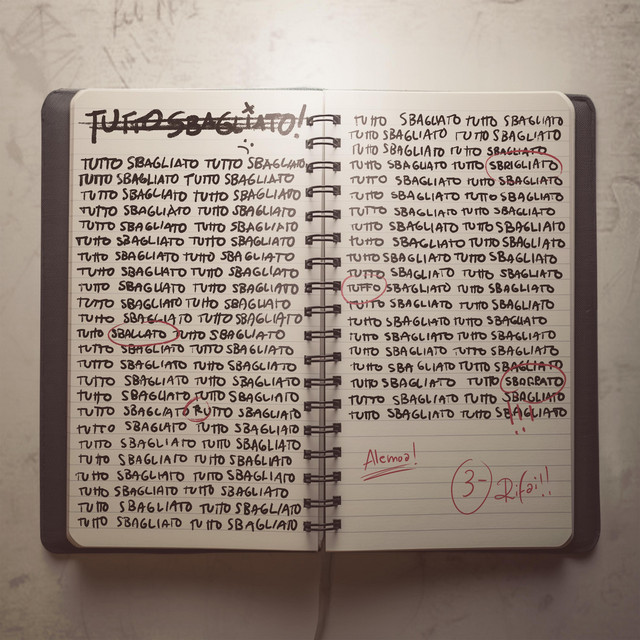 TUTTO SBAGLIATO!
TUTTO SBAGLIATO TUTTO SBAGLIATO
TUTTO SBAGLIATO TUTTO SBAGLIATO
TUTTO SBAGLIATO TUTTO SBAGLIATO
TUTTO SBAGLIATO TUTTO SBAGLIATO
TUTTO SBAGLIATO TUTTO SBAGLIATO
TUTTO SBAGLIATO TUTTO SBAGLIATO
TUTTO SBAGLIATO TUTTO SBAGLIATO
TUTTO SBAGLIATO TUTTO SBAGLIATO
TUTTO SBAGLIATO TUTTO SBAGLIATO
TUTTO SBAGLIATO TUTTO SBAGLIATO
TUTTO SBAGLIATO TUTTO SBAGLIATO
TUTTO SBALLATO TUTTO SBAGLIATO
TUTTO SBAGLIATO TUTTO SBAGLIATO
TUTTO SBAGLIATO TUTTO SBAGLIATO
TUTTO SBAGLIATO TUTTO SBAGLIATO
TUTTO SBAGLIATO TUTTO SBAGLIATO
TUTTO SBAGLIATO RUTTO SBAGLIATO
TUTTO SBAGLIATO TUTTO SBAGLIATO
TUTTO SBAGLIATO TUTTO SBAGLIATO
TUTTO SBAGLIATO TUTTO SBAGLIATO
TUTTO SBAGLIATO TUTTO SBAGLIATO
TUTTO SBAGLIATO TUTTO SBAGLIATO
TUTTO SBAGLIATO TUTTO SBAGLIATO
TUTTO SBAGLIATO TUTTO SBAGLIATO
TUTTO SBAGLIATO TUTTO SBAGLIATO
TUTTO SBAGLIATO TUTTO SBAGLIATO
TUTTO SBAGLIATO TUTTO SBAGLIATO
TUTTO SBAGLIATO TUTTO SBRIGLIATO
TUTTO SBAGLIATO TUTTO SBAGLIATO
TUTTO SBAGLIATO TUTTO SBAGLIATO
TUTTO SBAGLIATO TUTTO SBAGLIATO
TUTTO SBAGLIATO TUTTO SBAGLIATO
TUTTO SBAGLIATO TUTTO SBAGLIATO
TUTTO SBAGLIATO TUTTO SBAGLIATO
TUTTO SBAGLIATO TUTTO SBAGLIATO
TUFFO SBAGLIATO TUTTO SBAGLIATO
TUTTO SBAGLIATO TUTTO SBAGLIATO
TUTTO SBAGLIATO TUTTO SBAGLIATO
TUTTO SBAGLIATO TUTTO SBAGLIATO
TUTTO SBAGLIATO TUTTO SBAGLIATO
TUTTO SBAGLIATO TUTTO SBAGLIATO
TUTTO SBAGLIATO TUTTO SBORRATO
TUTTO SBAGLIATO TUTTO SBAGLIATO
TUTTO SBAGLIATO TUTTO SBAGLIATO
!!!
Alemoa!
3- Rifai!!